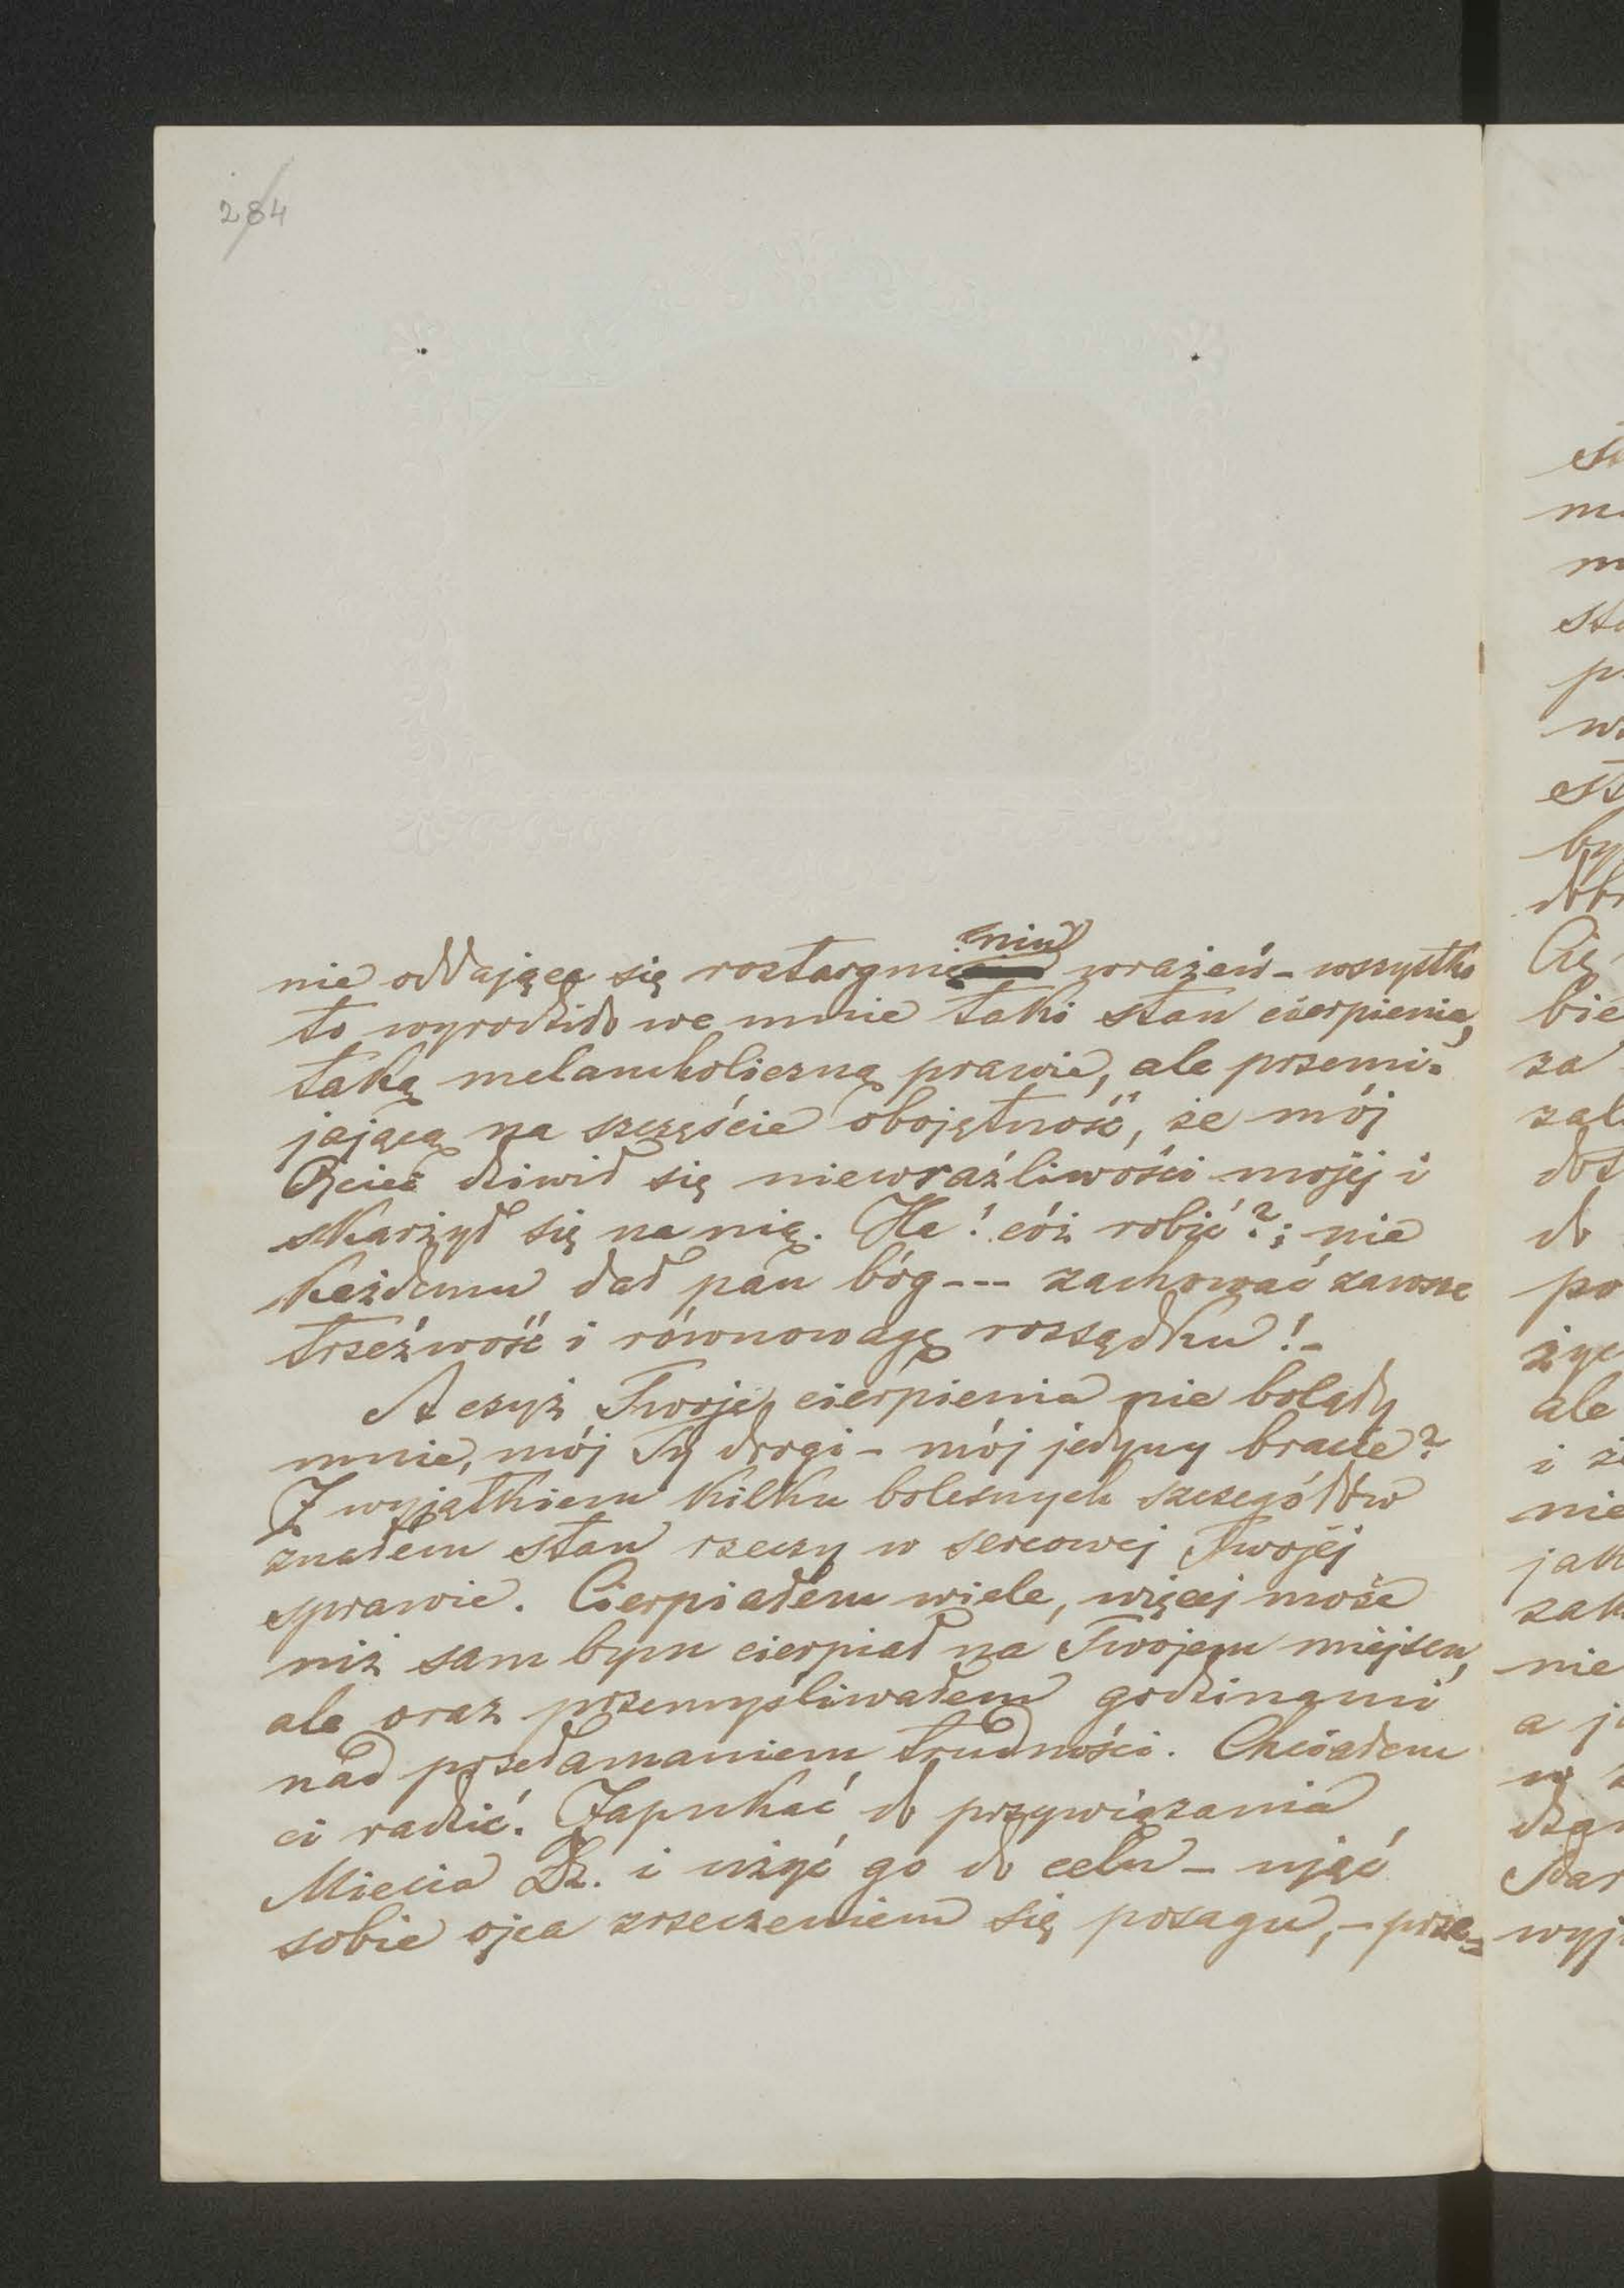 284
nie oddającą się roztargnieniu wrażeń – wszystko
to wyrodziło we mnie taki stan cierpienia,
taką melancholiczną prawie, ale przemi-
jającą na szczęście obojętność, że mój
Ojciec dziwił się niewraźliwości mojéj i
skarżył się na nią. Ha! cóż robić?; nie
każdemu dał pan bóg --- zachować zawsze
trzeźwość i równowagę rozsądku! –
A czyż Twoje cierpienia nie bolały
mnie, mój Ty drogi – mój jedyny bracie?
Z wyjątkiem kilku bolesnych szczegółów
znałem stan rzeczy w sercowej Twojéj
sprawie. Cierpiałem wiele, więcej może
niż sam bym cierpiał na Twojem miejscu,
ale oraz przemyśliwałem godzinami
nad przełamaniem trudności. Chciałem
ci radzić. Zapukać do przywiązania
Miecia Dz. i użyć go do celu – ująć
sobie ojca zrzeczeniem się posagu, – prze=
m
p
by
Cię
bie
za
do
po
ale
nie
nie